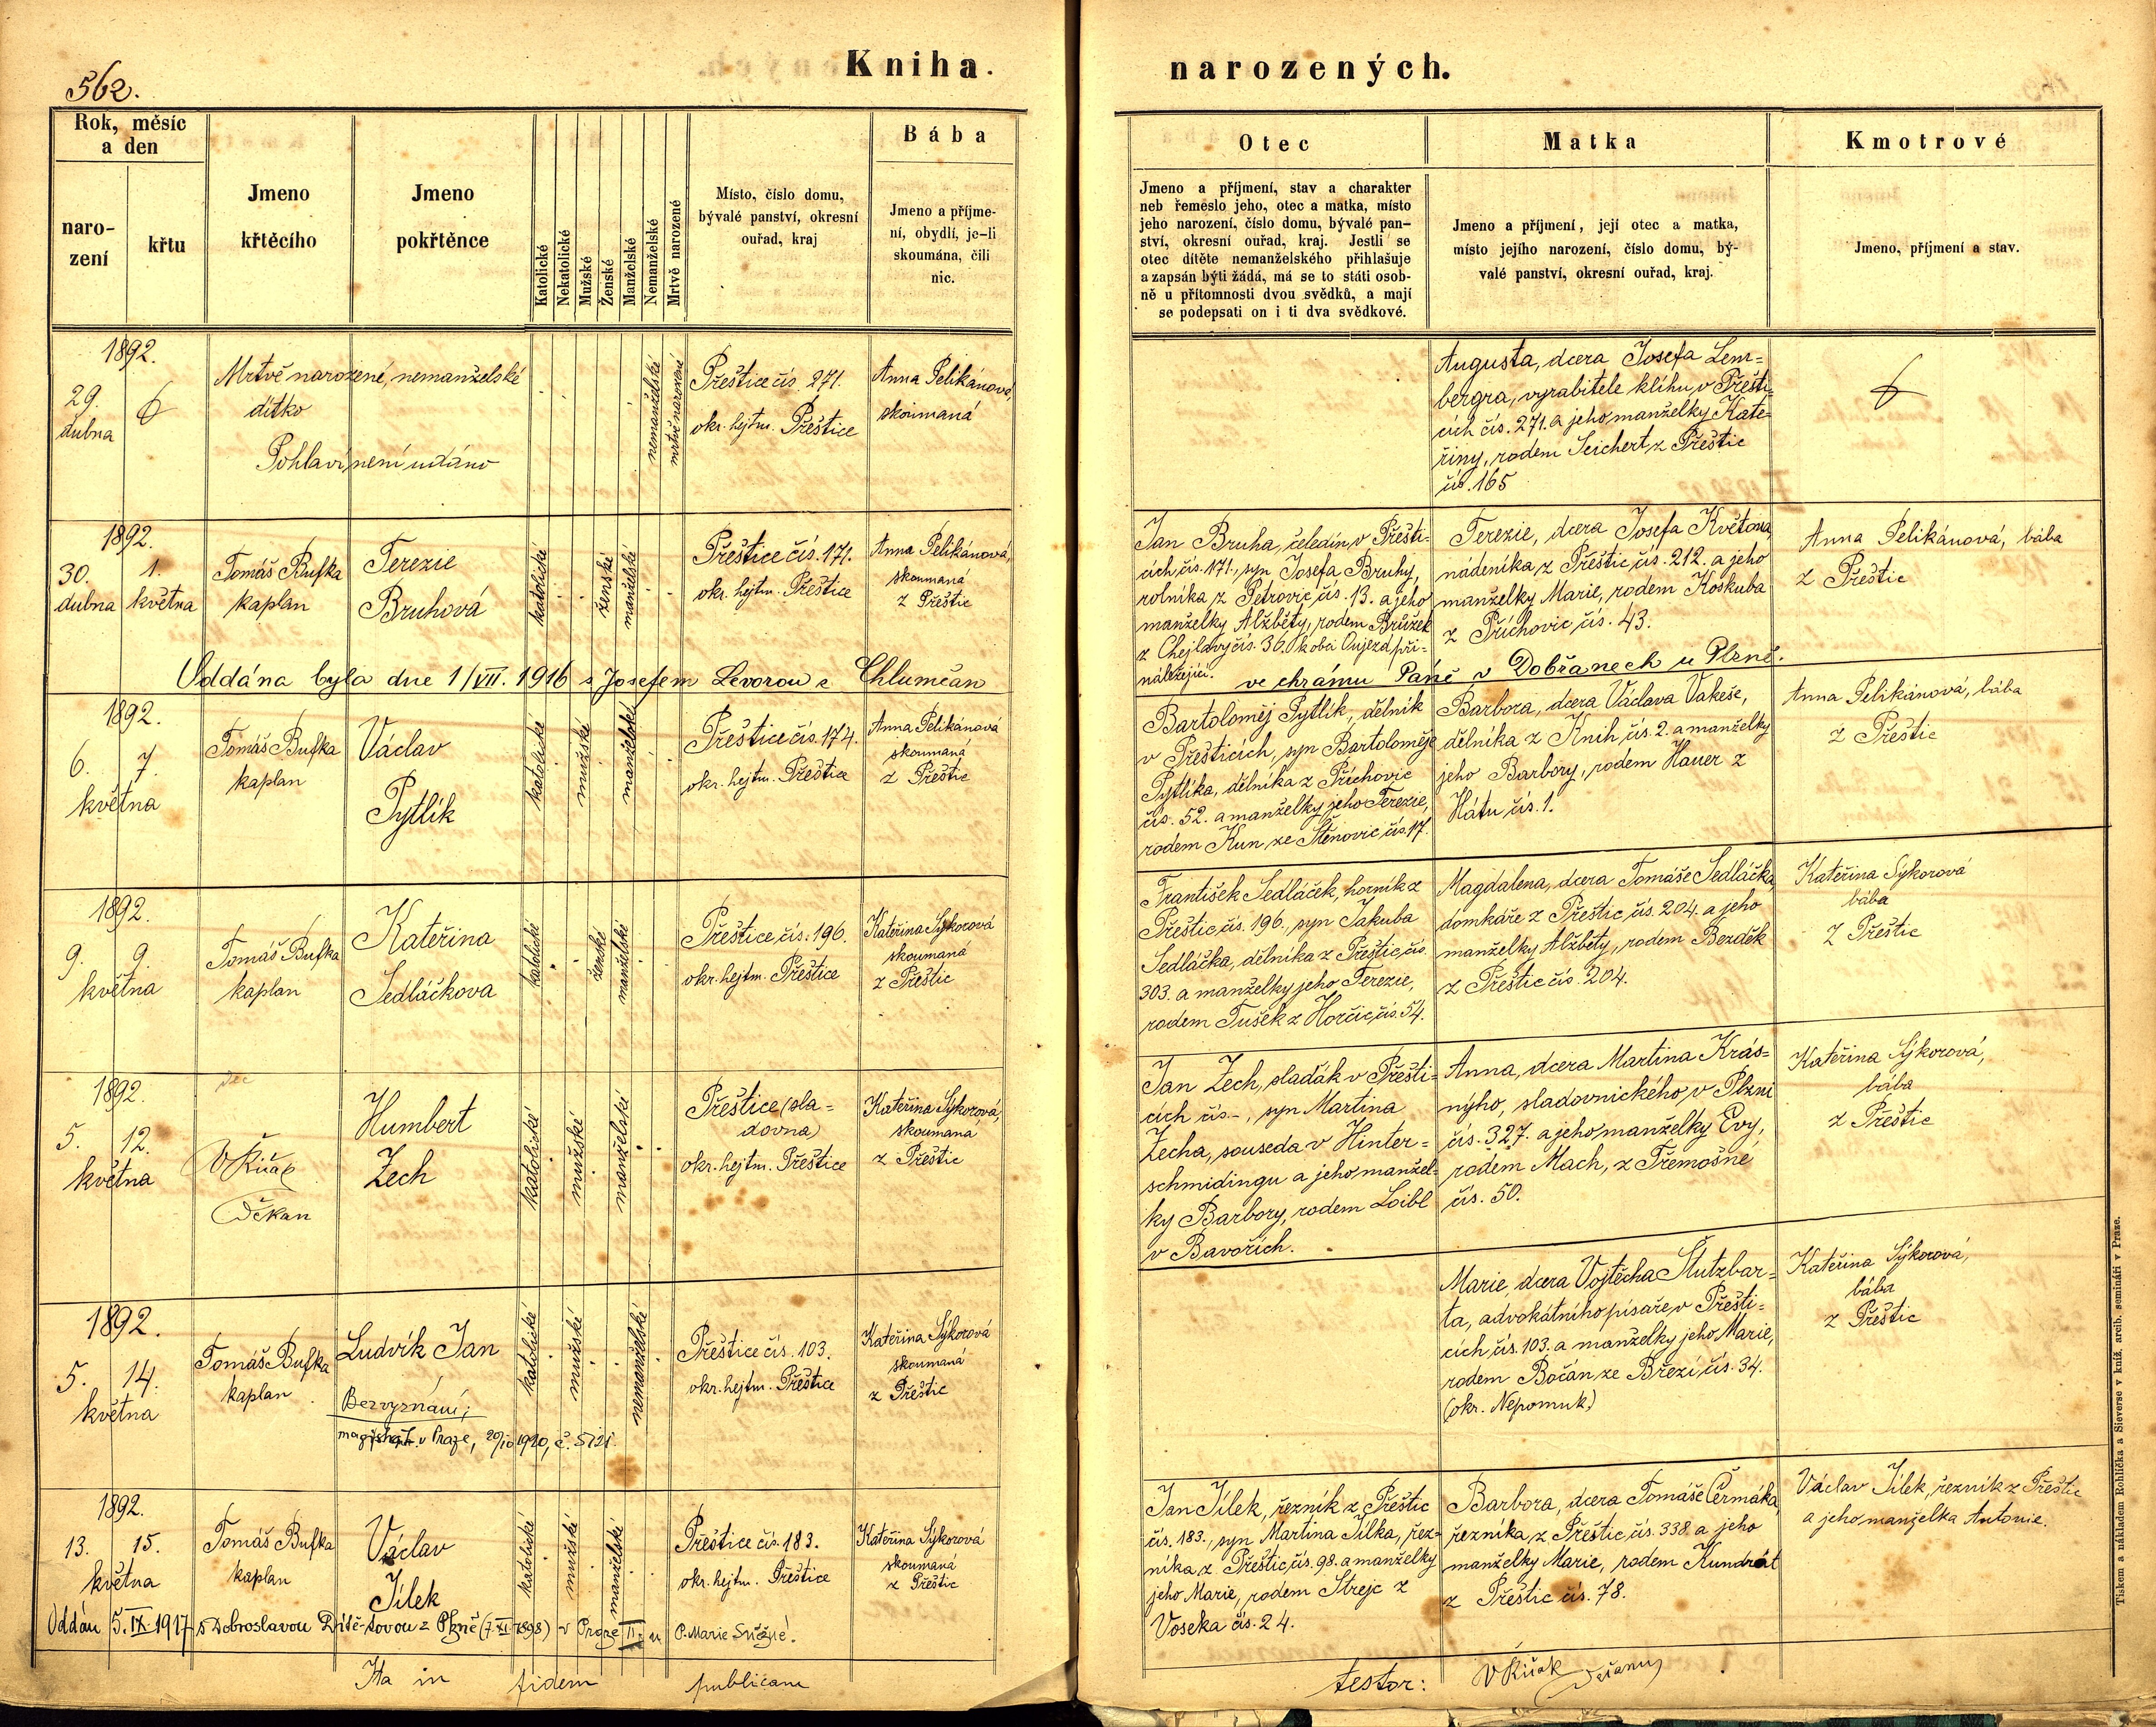 562.
Kniha.
narozených.
Rok, měsíc
a den
naro-
zení
křtu
Jmeno
křtěcího
Jmeno
pokřtěnce
Katolické
Nekatolické
Mužské
Ženské
Manželské
Nemanželské
Mrtvě narozené
Místo, číslo domu,
bývalé panství, okresní
ouřad, kraj
Bába
Jmeno a příjme-
ní, obydlí, je-li
skoumána, čili
nic.
Otec
Jmeno a příjmení, stav a charakter
neb řemeslo jeho, otec a matka, místo
jeho narození, číslo domu, bývalé pan-
ství, okresní ouřad, kraj. Jestli se
otec dítěte nemanželského přihlašuje
a zapsán býti žádá, má se to státi osob-
ně u přítomnosti dvou svědků, a mají
se podepsati on i ti dva svědkové.
Matka
Jmeno a příjmení, její otec a matka,
místo jejího narození, číslo domu, bý-
valé panství, okresní ouřad, kraj.
Kmotrové
Jmeno, příjmení a stav.
1892.
29.
dubna
Mrtvě narozené, nemanželské
dítko
Pohlaví není udáno
nemanželské
mrtvě narozené
Přeštice čís. 271.
okr. hejtm. Přeštice
Anna Pelikánová,
skoumaná
Augusta, dcera Josefa Lem=
bergra, vyrabitele klihu, v Přešti-
cích čís. 271. a jeho manželky Kate-
řiny, rodem Seichert, z Přeštic
čís. 165
1892.
30. 1.
dubna května
Tomáš Bufka
kaplan
Terezie
Bruhová
katolické
ženské
manželské
Přeštice čís. 171.
okr. hejtm. Přeštice
Anna Pelikánová,
skoumaná
z Přeštic
Jan Bruha, čeledín, v Přešti-
cích, čís. 171., syn Josefa Bruhy,
rolníka z Petrovic, čís. 13. a jeho
manželky Alžběty, rodem Brůžek
z Chejlavy čís. 36. k obci Oujezd při=
náležející.
Terezie, dcera Josefa Květona,
nádeníka z Přeštic, čís. 212. a jeho
manželky Marie, rodem Koskuba
z Příchovic, čís. 43.
Anna Pelikánová, bába
z Přeštic
Oddána byla dne 1/VII. 1916 s Josefem Levorou z Chlumčan
ve chrámu Páně v Dobřanech u Plzně.
1892.
6. 7.
května
Tomáš Bufka
kaplan
Václav
Pytlík
katolické
mužské
manželské
Přeštice čís. 174.
okr. hejtm. Přeštice
Anna Pelikánová
skoumaná
z Přeštic
Bartoloměj Pytlík, dělník
v Přešticích, syn Bartoloměje
Pytlíka, dělníka z Příchovic
čís. 52. a manželky jeho Terezie,
rodem Kun, ze Štěnovic, čís. 17.
Barbora, dcera Václava Vakeše,
dělníka z Knih, čís. 2. a manželky
jeho Barbory, rodem Hauer z
Hátu čís. 1.
Anna Pelikánová, bába
z Přeštic
1892.
9. 9.
května
Tomáš Bufka
kaplan
Kateřina
Sedláčkova
katolické
ženské
manželské
Přeštice, čís. 196.
okr. hejtm. Přeštice
Kateřina Sýkorová
skoumaná
z Přeštic
František Sedláček, horník z
Přeštic, čís. 196., syn Jakuba
Sedláčka, dělníka z Přeštic, čís.
303. a manželky jeho Terezie,
rodem Tušek z Horčic, čís. 54.
Magdalena, dcera Tomáše Sedláčka,
domkáře z Přeštic, čís. 204. a jeho
manželky Alžběty, rodem Bezděk
z Přeštic čís. 204.
Kateřina Sýkorová
bába
z Přeštic
1892.
5. 12.
května
děkan
Humbert
Zech
katolické
mužské
manželské
Přeštice (sla=
dovna)
okr. hejtm. Přeštice
Kateřina Sýkorová,
skoumaná
z Přeštic
Jan Zech, sladák v Přešti=
cích čís. –, syn Martina
Zecha, souseda v Hinter=
schmidingu a jeho manžel-
ky Barbory, rodem Loibl
v Bavořích.
Anna, dcera Martina Krás=
nýho, sladovnického v Plzni
čís. 327. a jeho manželky Evy,
rodem Mach, z Třemošné
čís. 50.
Kateřina Sýkorová,
bába
z Přeštic
1892.
5. 14.
května
Tomáš Bufka
kaplan
Ludvík Jan
Bez vyznání;
v Praze, 20/10 1920, č. 5121.
katolické
mužské
nemanželské
Přeštice čís. 103.
okr. hejtm. Přeštice
Kateřina Sýkorová
skoumaná
z Přeštic
Marie, dcera Vojtěcha Štutzbar=
ta, advokátního písaře, v Přešti=
cích, čís. 103. a manželky jeho Marie,
rodem Bočán ze Březí, čís. 34.
(okr. Nepomuk.)
Kateřina Sýkorová,
bába
z Přeštic
1892.
13. 15.
května
Tomáš Bufka
kaplan
Václav
Jílek
katolické
mužské
manželské
Přeštice čís. 183.
okr. hejtm. Přeštice
Kateřina Sýkorová
skoumaná
z Přeštic
Jan Jílek, řezník z Přeštic
čís. 183., syn Martina Jílka, řez=
níka z Přeštic, čís. 98. a manželky
jeho Marie, rodem Strejc z
Voseka čís. 24.
Barbora, dcera Tomáše Čermáka,
řezníka, z Přeštic, čís. 338. a jeho
manželky Marie, rodem Kundrát
z Přeštic čís. 78.
Václav Jílek, řezník z Přeštic
a jeho manželka Antonie.
Oddán 5. IX. 1917 s Dobroslavou Dítě-tovou z Plzně (7. XI. 1898) v Praze II. u P. Marie Sněžné.
Ita in fidem publicam
testor:
Tiskem a nákladem Rohlíčka a Sieverse v kníž. arcib. semináři v Praze.